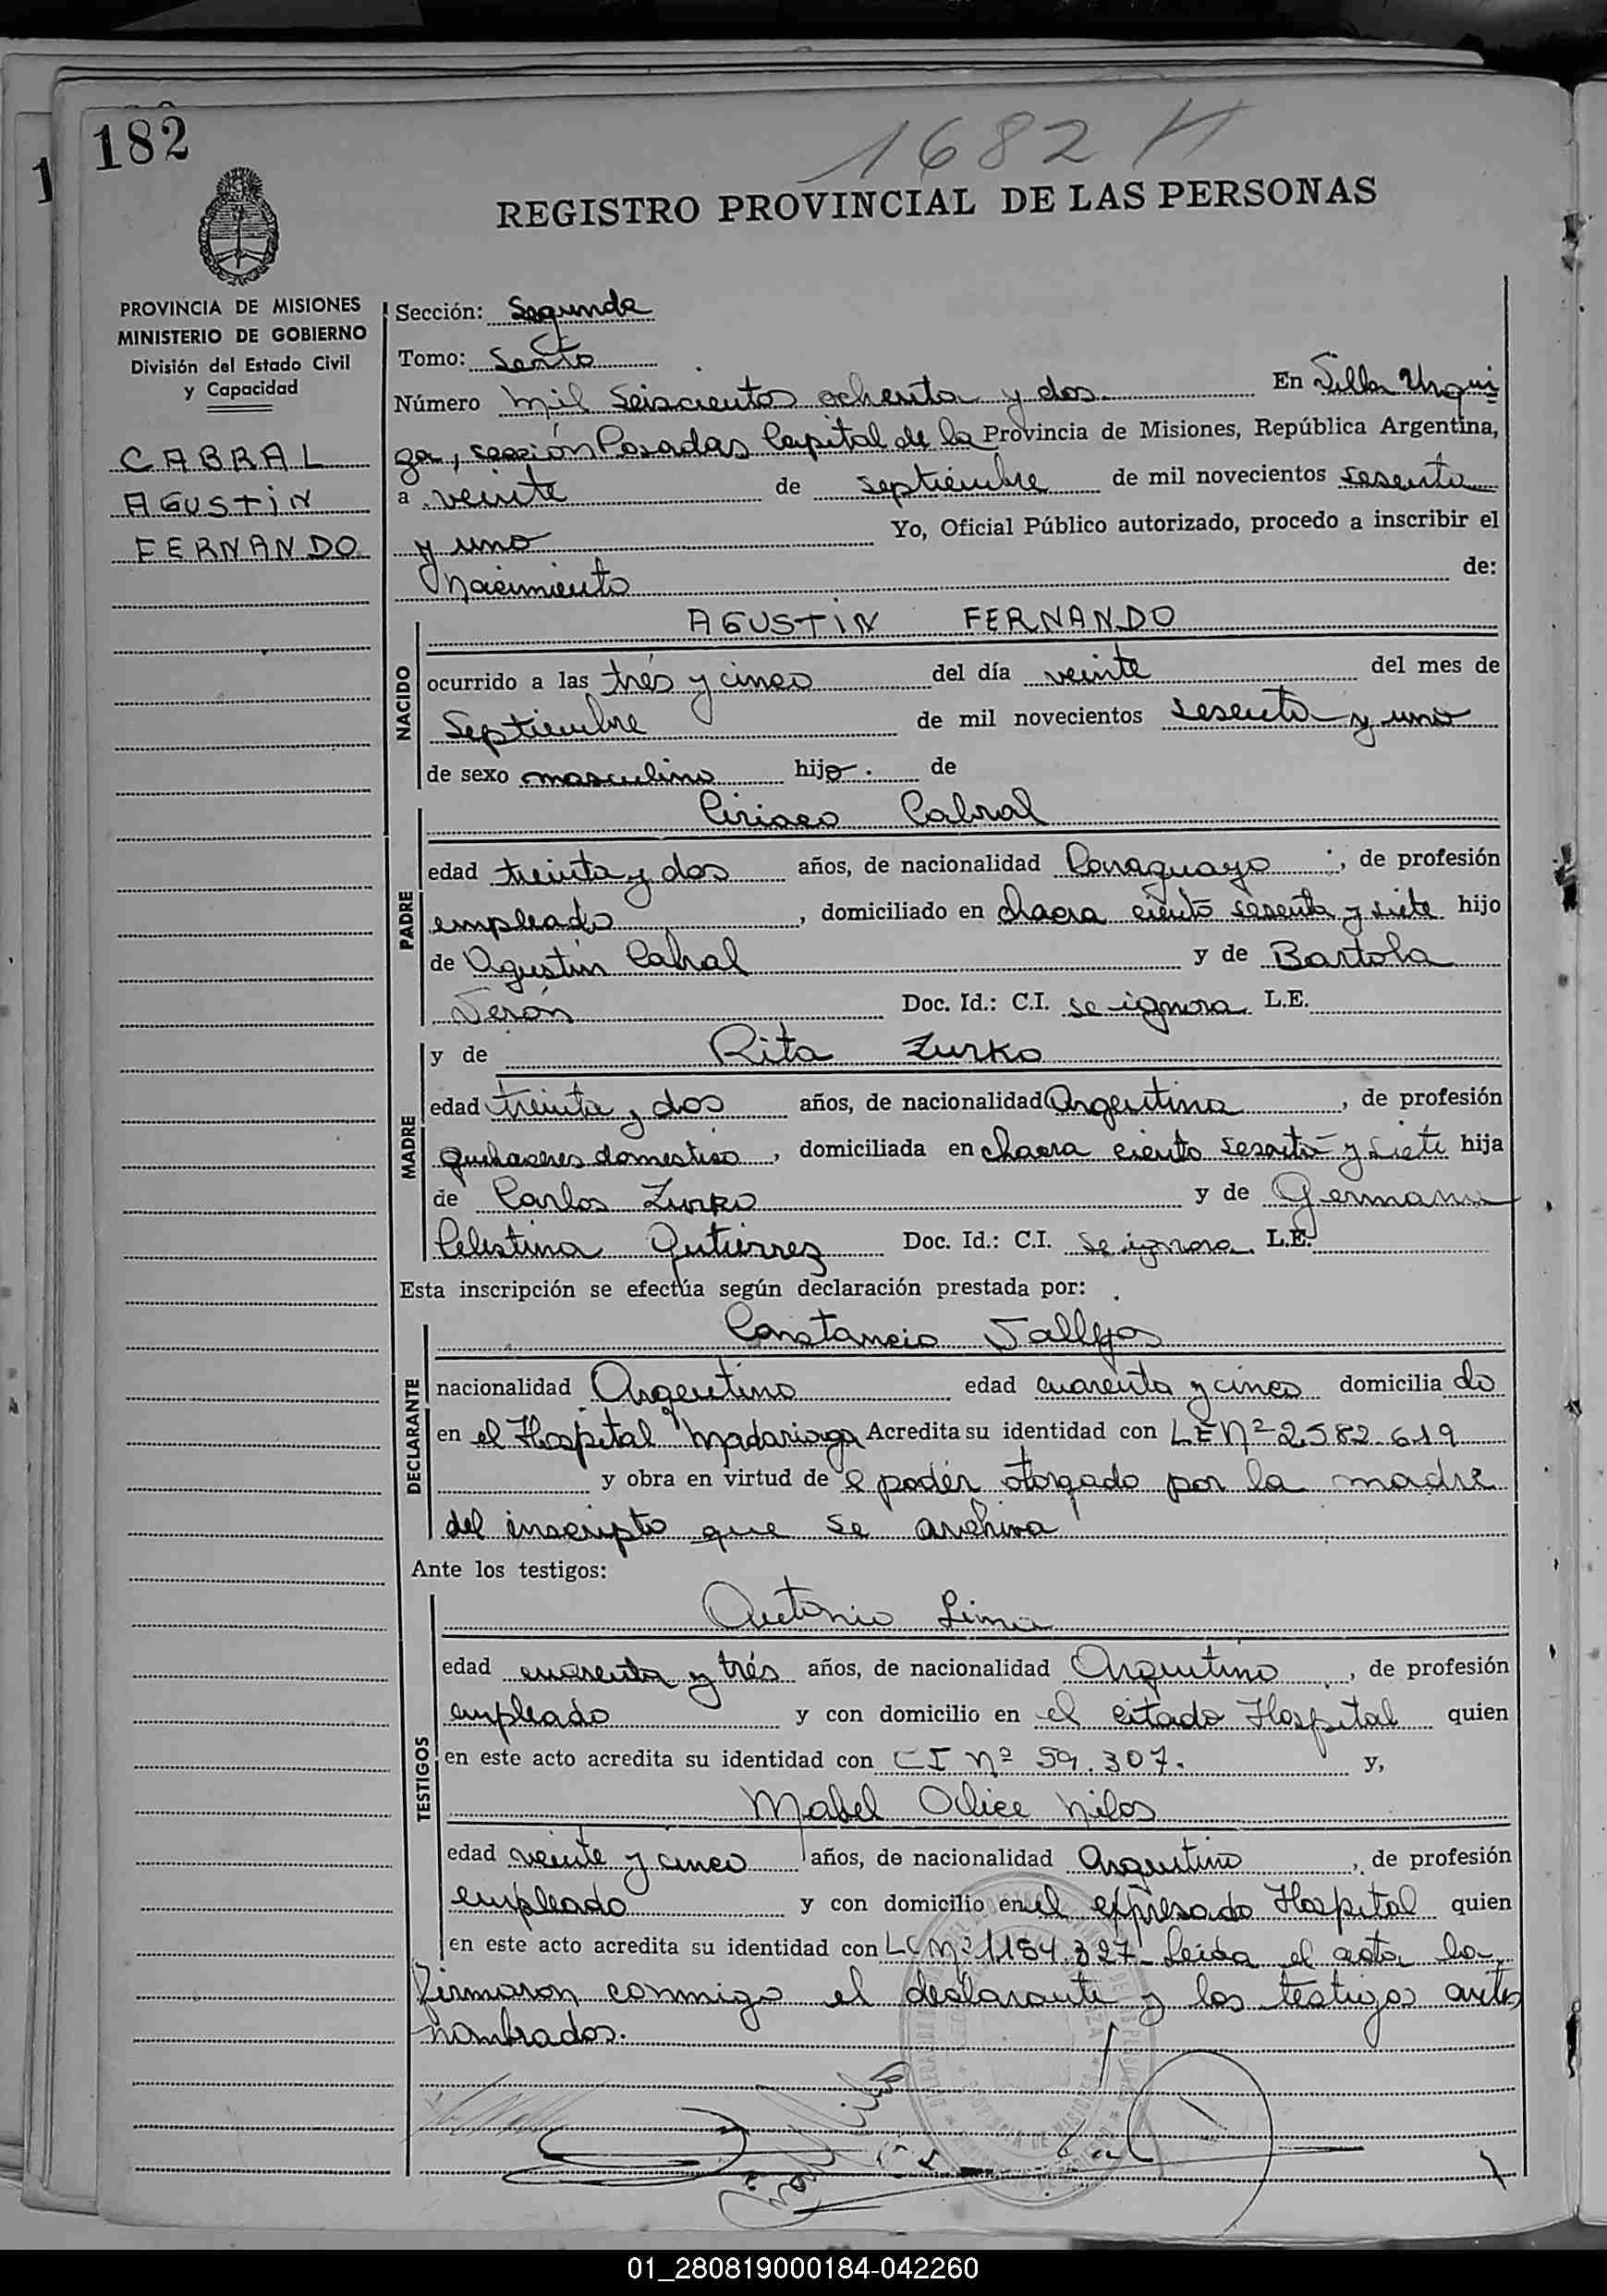 182
1682 H
REGISTRO PROVINCIAL DE LAS PERSONAS
PROVINCIA DE MISIONES
MINISTERIO DE GOBIERNO
División del Estado Civil
y Capacidad
CABRAL
AGUSTIN
FERNANDO
Sección: Segunda
Tomo: Sexto
Número mil seiscientos ochenta y dos En Villa Urqui
za, sección Posadas Capital de la Provincia de Misiones, República Argentina,
a veinte de septiembre de mil novecientos sesenta
y uno Yo, Oficial Público autorizado, procedo a inscribir el
Nacimiento de:
NACIDO
AGUSTIN FERNANDO
ocurrido a las trés y cinco del día veinte del mes de
Septiembre de mil novecientos sesenta y uno
de sexo masculino hijo. de
PADRE
Ciriaco Cabral
edad treinta y dos años, de nacionalidad Paraguayo, de profesión
empleado, domiciliado en chacra ciento sesenta y siete hijo
de Agustin Cabral y de Bartola
Verón Doc. Id.: C.I. se ignora L.E.
MADRE
y de Rita Zurko
edad treinta y dos años, de nacionalidad Argentina, de profesión
quehaceres domestico, domiciliada en chacra ciento sesenta y siete hija
de Carlos Zurko y de Germana
Celestina Gutierrez Doc. Id.: C.I. se ignora L.E.
Esta inscripción se efectúa según declaración prestada por:
DECLARANTE
Constancio Vallejos
nacionalidad Argentino edad cuarenta y cinco domicilia do
en el Hospital Madariaga Acredita su identidad con LE Nº 2.582.619
y obra en virtud de el podér otorgado por la madre
del inscripto que se archiva
Ante los testigos:
TESTIGOS
Antonio Lima
edad cuarenta y trés años, de nacionalidad Argentino, de profesión
empleado y con domicilio en el citado Hospital quien
en este acto acredita su identidad con CI Nº 59.307. y,
Mabel Alice
edad veinte y cinco años, de nacionalidad Argentino, de profesión
empleado y con domicilio en el expresado Hospital quien
en este acto acredita su identidad con LC Nº 1154.327 Leída el acta la
firmaron conmigo el declarante y los testigos antes
nombrados.
01_280819000184-042260